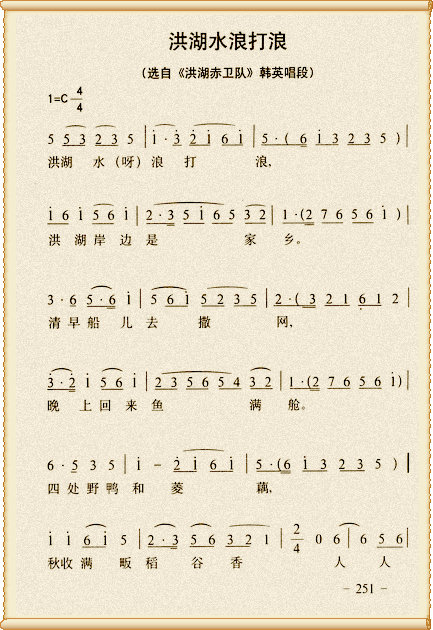 洪湖水浪打浪
(选自《洪湖赤卫队》韩英唱段)
1=C 4/4
5 5 3 2 3 5 | i · 3 2 i 6 i | 5 · ( 6 i 3 2 3 5 ) |
洪湖 水 (呀) 浪 打 浪,
i 6 i 5 6 i | 2 · 3 5 i 6 5 3 2 | 1 · (2 7 6 5 6 i ) |
洪 湖 岸 边 是 家 乡。
3 · 6 5 · 6 i | 5 6 i 5 2 3 5 | 2 · ( 3 2 1 6 1 2
清 早 船 儿 去 撒 网,
3 · 2 i 5 6 i | 2 3 5 6 5 4 3 2 | 1 · (2 7 6 5 6 i) |
晚 上 回 来 鱼 满 舱。
6 · 5 3 5 | i – 2 i 6 i | 5 · (6 i 3 2 3 5 ) |
四 处 野 鸭 和 菱 藕,
i i 6 i 5 | 2 · 3 5 6 3 2 1 | 2/4 0 6 | 6 5 6 |
秋收 满 畈 稻 谷 香 人 人
– 251 –